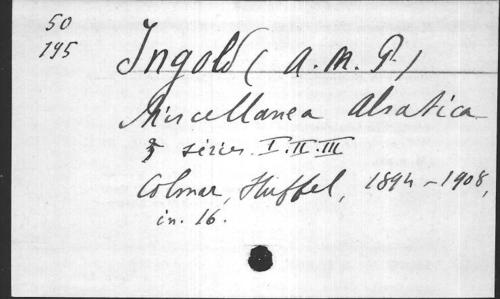 50
195
Ingold (A.M.P.)
Miscellanea Alsatica
3 séries. I. II. III
Colmar, Hüffel, 1894-1908,
in. 16.